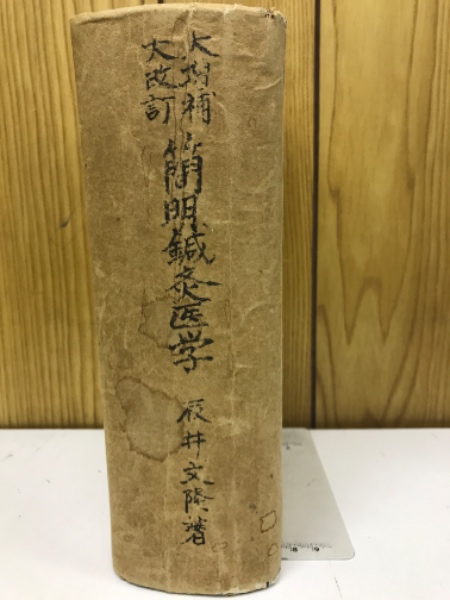 大増補
大改訂
簡明鍼灸医学
辰井文隆著